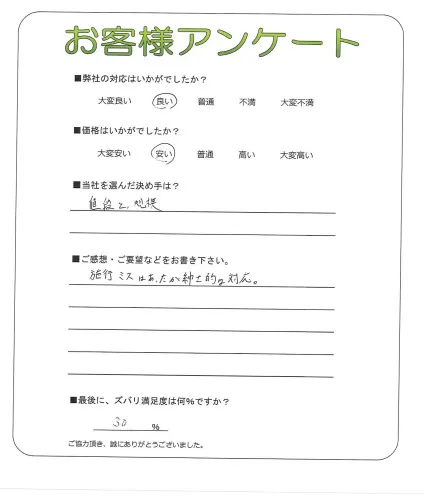 お客様アンケート
■弊社の対応はいかがでしたか？
大変良い 良い 普通 不満 大変不満
■価格はいかがでしたか？
大変安い 安い 普通 高い 大変高い
■当社を選んだ決め手は？
値段と
■ご感想・ご要望などをお書き下さい。
施行ミスはあったが紳士的な対応。
■最後に、ズバリ満足度は何%ですか？
30 %
ご協力頂き、誠にありがとうございました。